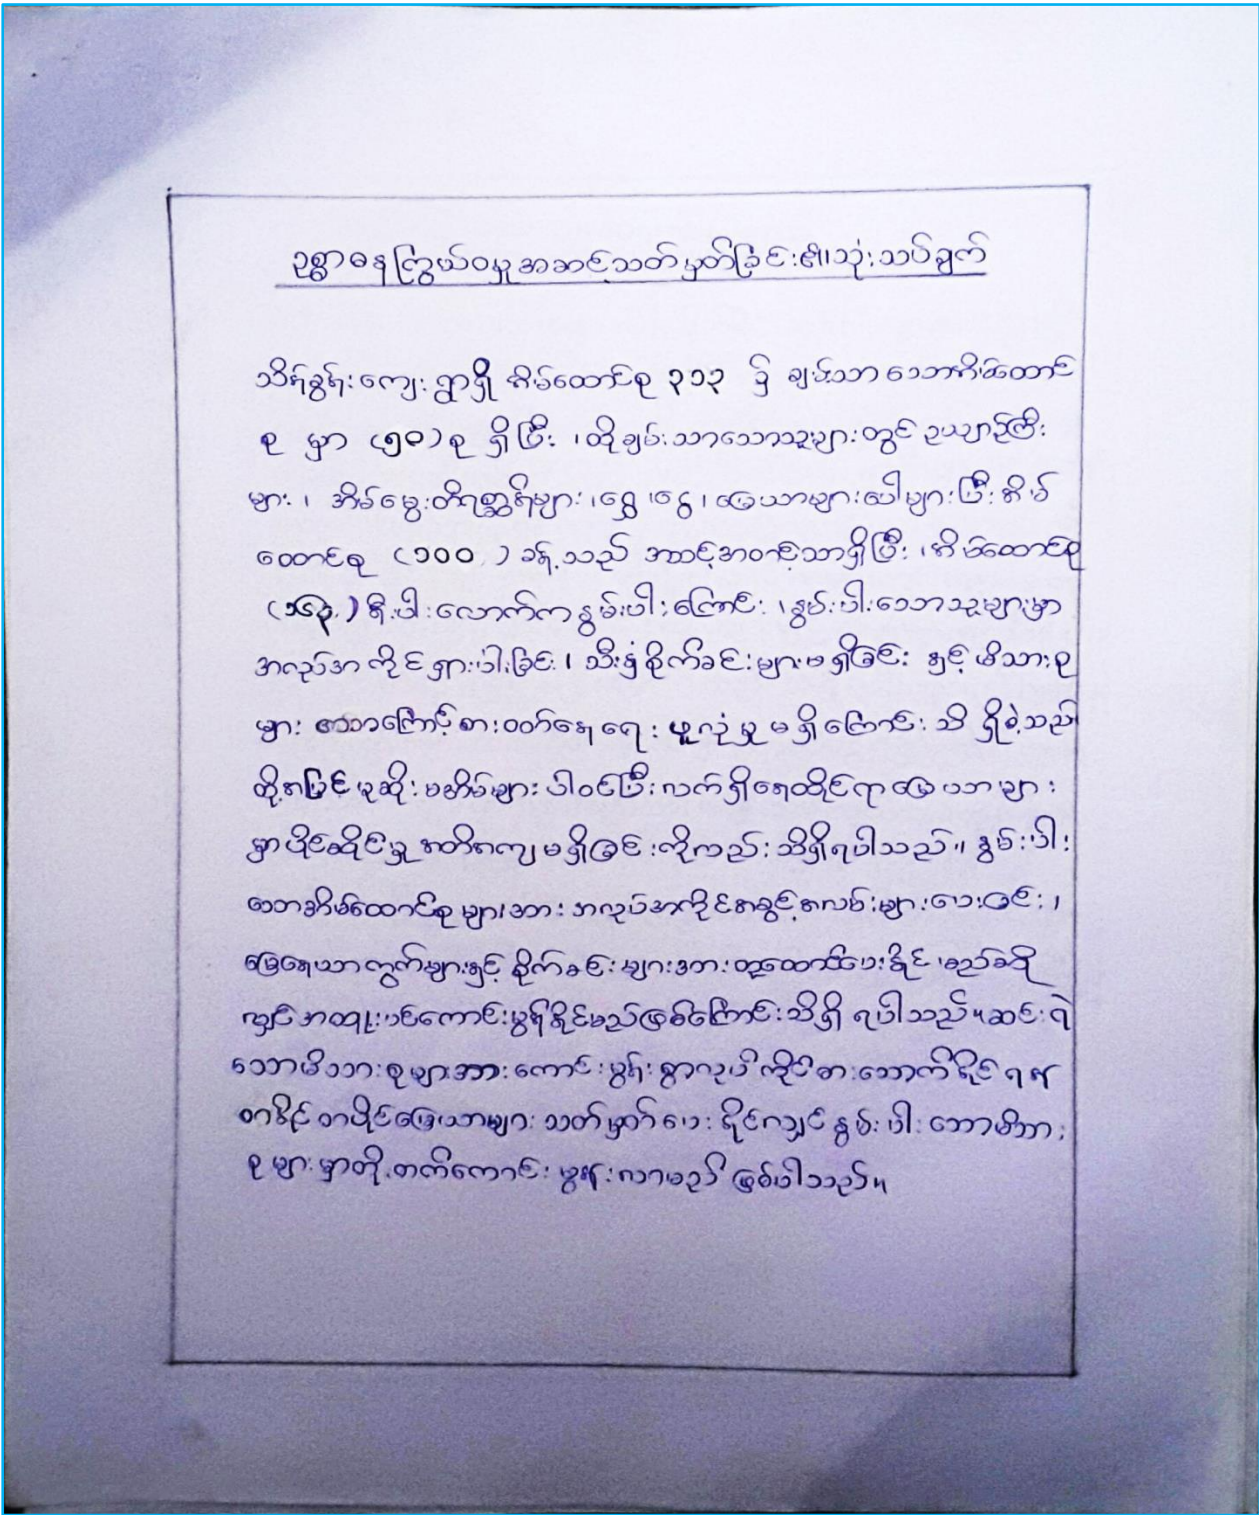 ဥစ္စာဓနကြွယ်ဝမှုအဆင့်သတ်မှတ်ခြင်း၏သုံးသပ်ချက်
သိန်ခွန်းကျေးရွာရှိ အိမ်ထောင်စု ၃၁၃ ၌ ချမ်းသာသောအိမ်ထောင်
စု မှာ (၅၀) စု ရှိပြီး ၊ ထိုချမ်းသာသောသူများတွင် ဥယျာဉ်ကြီး
များ ၊ အိမ်မွေးတိရစ္ဆာန်များ ၊ ရွှေ ၊ ငွေ ၊ မြေယာများပေါများပြီး အိမ်
ထောင်စု (၁၀၀) ခန့်သည် အသင့်အတင့်သာရှိပြီး ၊ အိမ်ထောင်စု
(၁၆၃) စီးပါးလောက်က နွမ်းပါးကြောင်း ၊ နွမ်းပါးသောသူများမှာ
အလုပ်အကိုင်ရှားပါးခြင်း ၊ သီးနှံစိုက်ခင်းများမရှိခြင်း နှင့် မိသားစု
များ သောကြောင့် စားဝတ်နေရေး ဖူလုံမှု မရှိကြောင်း သိ ရှိခဲ့သည်
ထို့အပြင် မုဆိုးမအိမ်များ ပါဝင်ပြီး လက်ရှိနေထိုင်ရာ မြေယာများ
မှာ ပိုင်ဆိုင်မှု အတိအကျ မရှိခြင်းကိုလည်း သိရှိရပါသည်။ နွမ်းပါး
သောအိမ်ထောင်စုများအား အလုပ်အကိုင်အခွင့်အလမ်းများပေးခြင်း ၊
မြေနေယာကွက်များနှင့် စိုက်ခင်းများအား ထူထောင်ပေးနိုင်မည်ဆို
လျှင် အထူးပင်ကောင်းမွန်နိုင်မည်ဖြစ်ကြောင်း သိရှိ ရပါသည်။ ဆင်းရဲ
သောမိသားစုများအား ကောင်းမွန်းစွာလုပ်ကိုင်စားသောက်နိုင်ရန်
တစ်နိုင်တပိုင်မြေယာများ သတ်မှတ်ပေးနိုင်လျှင် နွမ်းပါးသောမိသား
စုများမှာတိုးတက်ကောင်းမွန်းလာမည် ဖြစ်ပါသည်။